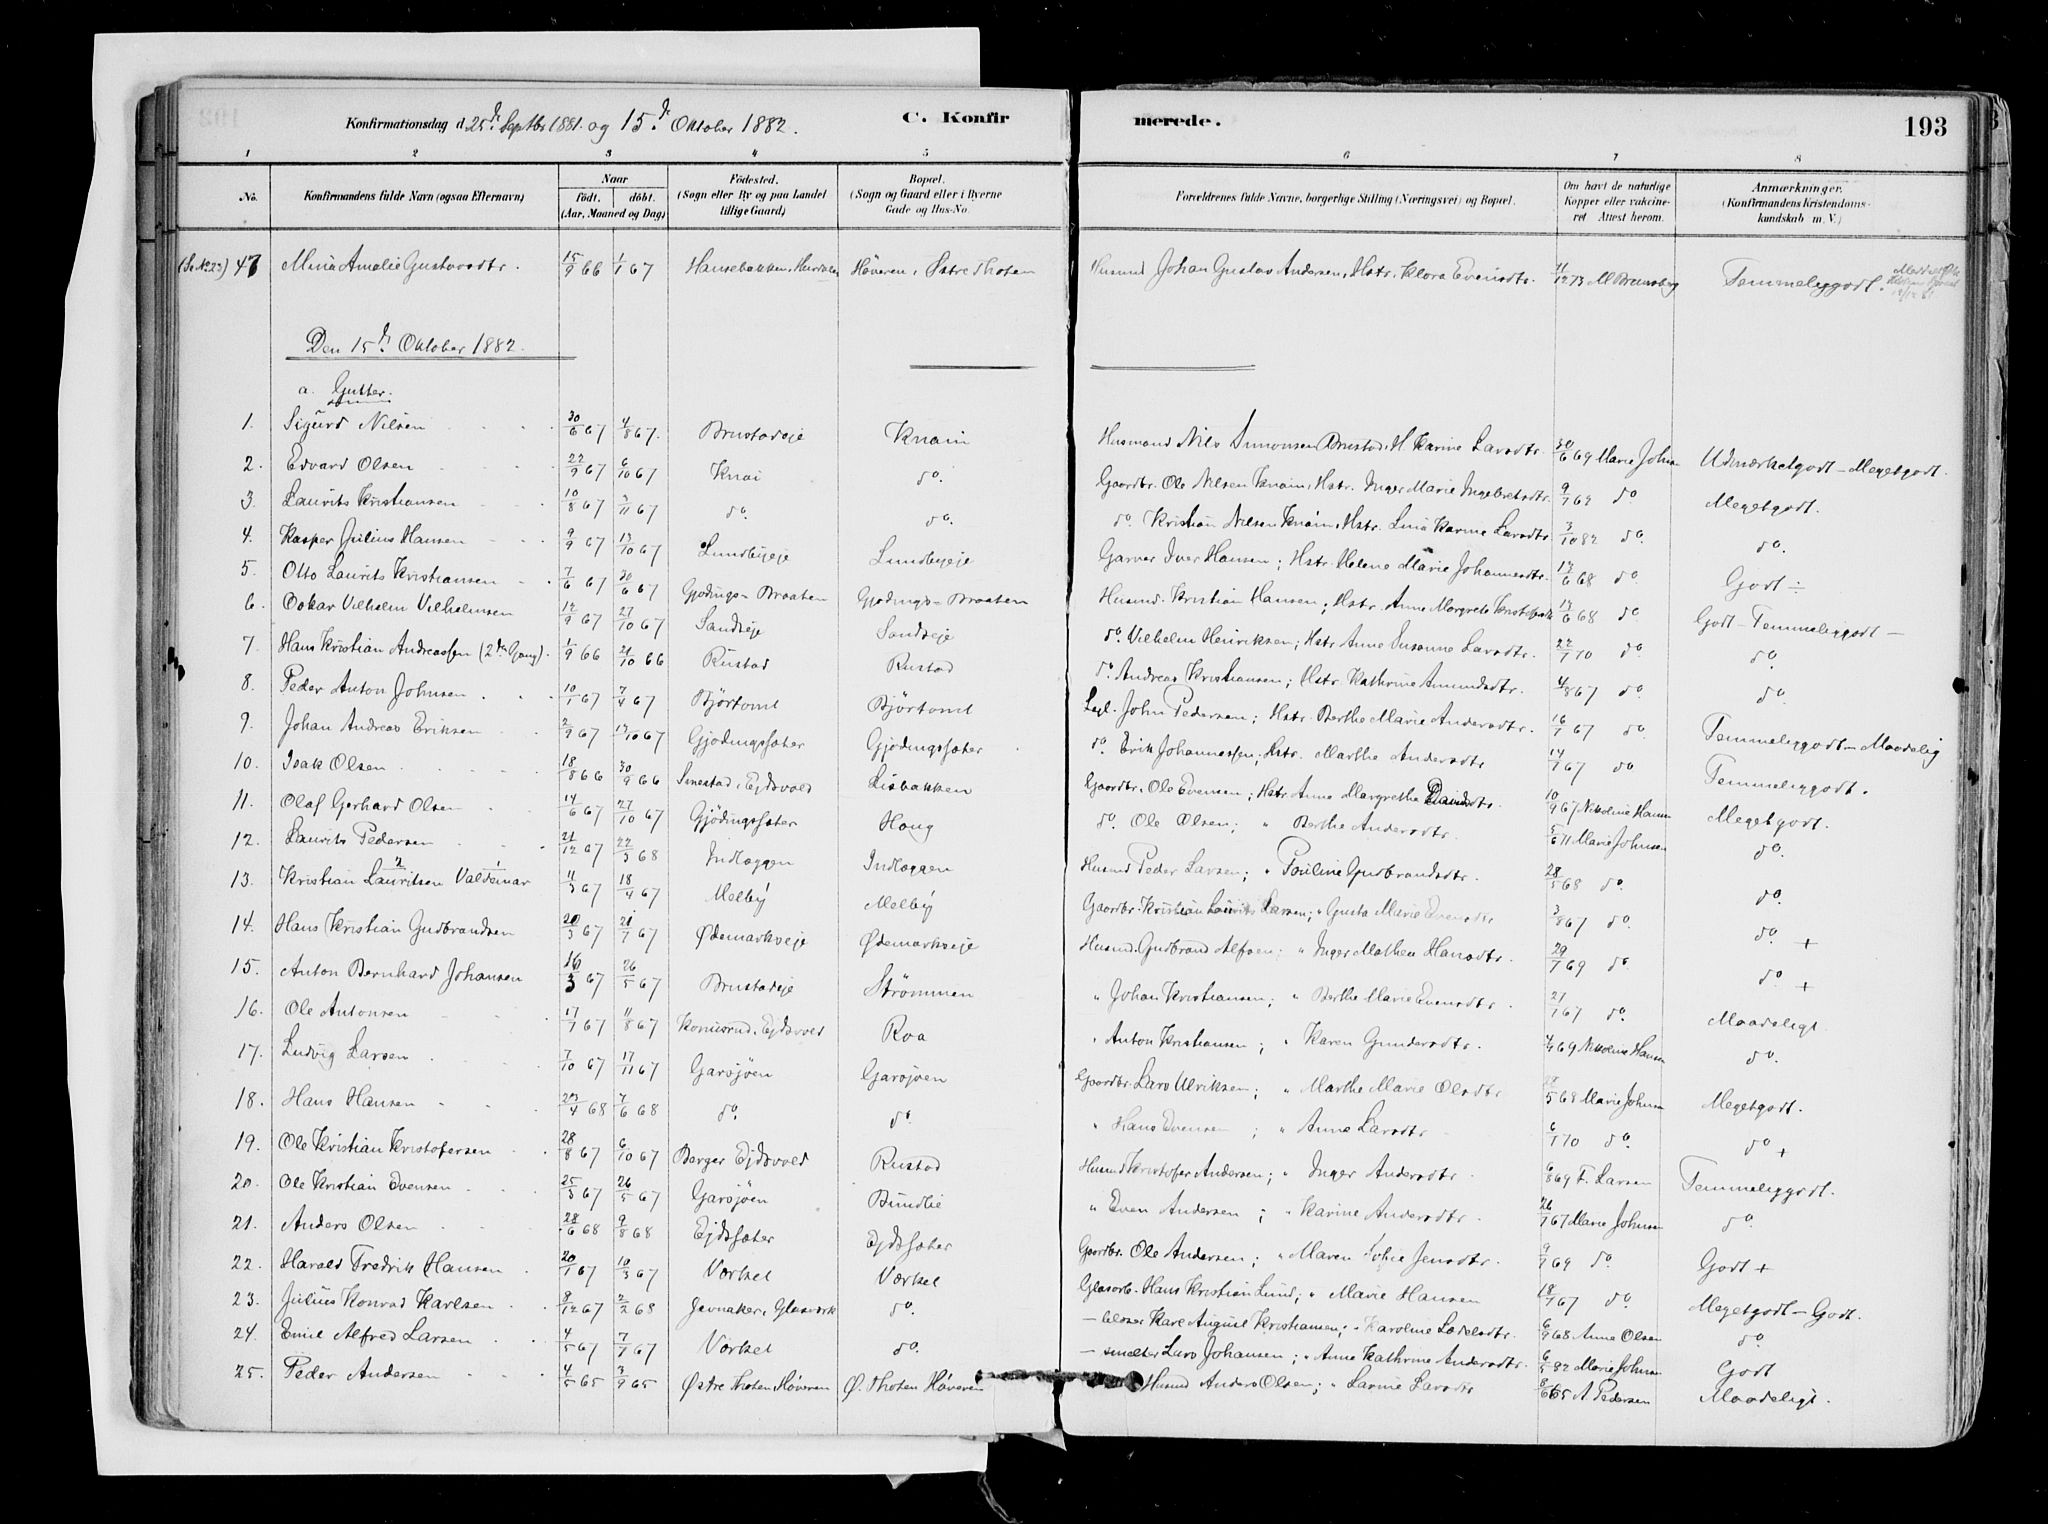 Konfirmationsdag d. 25de Septbr 1881 og 15de Oktober 1882. C. Konfirmerede. 193
1 2 3 4 5 6 7 8
No. Konfirmandens fulde Navn (ogsaa Efternavn) Naar født. døbt. (Aar, Maaned og Dag) Fødested. (Sogn eller By og paa Landet tillige Gaard) Bopæl. (Sogn og Gaard eller i Byerne Gade og Hus-No. Forældrenes fulde Navne, borgerlige Stilling (Næringsvei) og Bopæl. Om havt de naturlige Kopper eller vaccineret Attest herom. Anmærkninger. (Konfirmandens Kristendomskundskab m. V.)
(Se No 23) 47 Mina Amalie Gustavsdtr. 15/9 66 1/1 67 Hansebakken, Høveren, Østre Thoten Husmd Johan Gustav Andersen, Hstr. Klora Evensdtr. 11/12 73 Temmeliggodt.
Den 15de Oktober 1882.
a. Gutter.
1. Sigurd Nilsen 30/6 67 4/8 67. Brustadeje Knain Husmand Nils Simonsen Brustad, H. Karine Larsdtr. 30/6 69 Marie Johnsen Udmærketgodt - Megetgodt.
2. Edvard Olsen 22/9 67 6/10 67 Knai do. Gaardbr. Ole Nilsen Knain, Hstr. Inger Marie Ingebretsdtr. 9/7 69 do Megetgodt.
3. Laurits Kristiansen 10/8 67 3/11 67 do. do. do. Kristian Nilsen Knain, Hstr. Lina Karine Larsdtr. 3/10 82 do. do.
4. Kasper Julius Hansen 9/9 67 13/10 67 Lundbyeje Lundbyeje Garver Iver Hansen; Hstr. Helene Marie Johannesdtr. 13/6 68 do. Godt ÷
5. Otto Laurits Kristiansen 7/6 67 30/6 67 Gjødings-Braaten Gjødings-Braaten Husmd. Kristian Hansen; Hstr. Anne Margrete 13/6 68 do. Godt - Temmeliggodt -
6. Oskar Vilhelm Vilhelmsen 12/9 67 27/10 67 Sandseje Sandseje do. Vilhelm Henriksen; Hstr. Anne Susanne Larsdtr. 22/7 70 do. do.
7. Hans Kristian Andreassen (2den Gang). 1/9 66 21/10 66 Rustad Rustad do Andreas Kristiansen; Hstr. Kathrine Amundsdtr. 4/8 67 do. do.
8. Peder Anton Johnsen 10/1 67 7/4 67 Bjørtomt Bjørtomt John Pedersen; Hstr. Berthe Marie Andersdtr. 16/7 67 do. Temmeliggodt - Maadelig
9. Johan Andreas Eriksen 2/9 67 13/10 67 Gjødingssæter Gjødingssæter do. Erik Johannessen; Hstr. Marthe Andersdtr 14/7 67 do Temmeliggodt.
10. Isak Olsen 18/8 66 30/9 66 Sinestad, Ejdsvold Lisbakken Gaardbr. Ole Evensen; Hstr. Anne Margrethe 10/9 67 Nikoline Hansen Megetgodt.
11. Olaf Gerhard Olsen 14/6 67 27/10 67 Gjødingssæter Haug do. Ole Olsen; " Berthe Andersdtr. 5/6 71 Marie Johnsen do.
12. Laurits Pedersen 21/12 67 22/3 68 Indlaggen Indlaggen Husmd Peder Larsen; " Pauline Gudbrandsdtr. 28/5 68 do. do.
13. Kristian Lauritsen 2 Valdemar 1 11/3 67 18/4 67 Melby Melby Gaardbr. Kristian Laurits Larsen; " Gusta Marie Evensdtr 3/8 67 do. do. +
14. Hans Kristian Gudbrandsen 20/3 67 21/7 67 Ødemarkseje Ødemarkseje Husmd. Gudbrand Alfsen; " Inger Mathea Hansdtr. 29/7 69 do. do +
15. Anton Bernhard Johansen 16/3 67 26/5 67 Brustadeje Strømmen " Johan Kristiansen; " Berthe Marie Evensdtr. 21/7 67 do. Maadeligt.
16. Ole Antonsen 17/7 67 11/8 67 Ejdsvold Roa " Anton Kristiansen; " Karen Gundersdtr. 4/9 69 Nikoline Hansen do.
17. Ludvig Larsen 7/10 67 17/11 67 Garsjøen Garsjøen Gaardbr. Lars Ulriksen; " Marthe Marie Olsdtr 5 68 Marie Johnsen Megetgodt.
18. Hans Hansen 23/4 68 7/6 68 do. do. " Hans Evensen; " Anne Larsdtr 6/7 70 do. do +
19. Ole Kristian Kristofersen 28/8 67 6/10 67 Berger Ejdsvold Rustad Husmd Kristofer Andersen; " Inger Andersdtr. 6/8 69 F. Larsen Temmeliggodt.
20. Ole Kristian Evensen 25/3 67 26/5 67 Garsjøen Bundlie " Even Andersen; " Karine Andersdtr. 26/7 67 Marie Johnsen do.
21. Anders Olsen 28/6 68 9/8 68 Ejdssæter Ejdssæter Gaardbr. Ole Andersen; " Maren Sofie Jensdtr. 9/7 69 do. Godt +
22. Harald Fredrik Hansen 20/1 67 10/3 67 Værket Værket Glasarb. Hans Kristian Lund; " Marie Hansen 18/7 67 do. Megetgodt - Godt.
23. Julius Konrad Karlsen 8/12 67 2/2 68 Jevnaker, Glasværk do. - blæser Karl August Kristiansen; " Karoline 6/9 68 Anne Olsen do.
24. Emil Alfred Larsen 4/5 67 7/7 67 Værket do. - smelter Lars Johansen; " Anne Kathrine Andersdtr. 6/5 82 Marie Johnsen Godt
25. Peder Andersen 4/5 65 3/9 65 Østre Thoten, Høveren Ø. Thoten Høveren Husmd Anders Olsen; " Larine Larsdtr 8/6 65 A Pedersen Maadeligt.